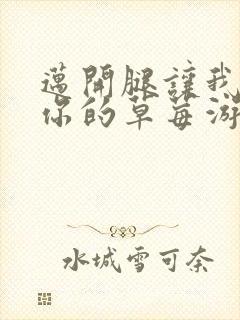 邁開腿讓我
你的草莓游
水城雪可奈